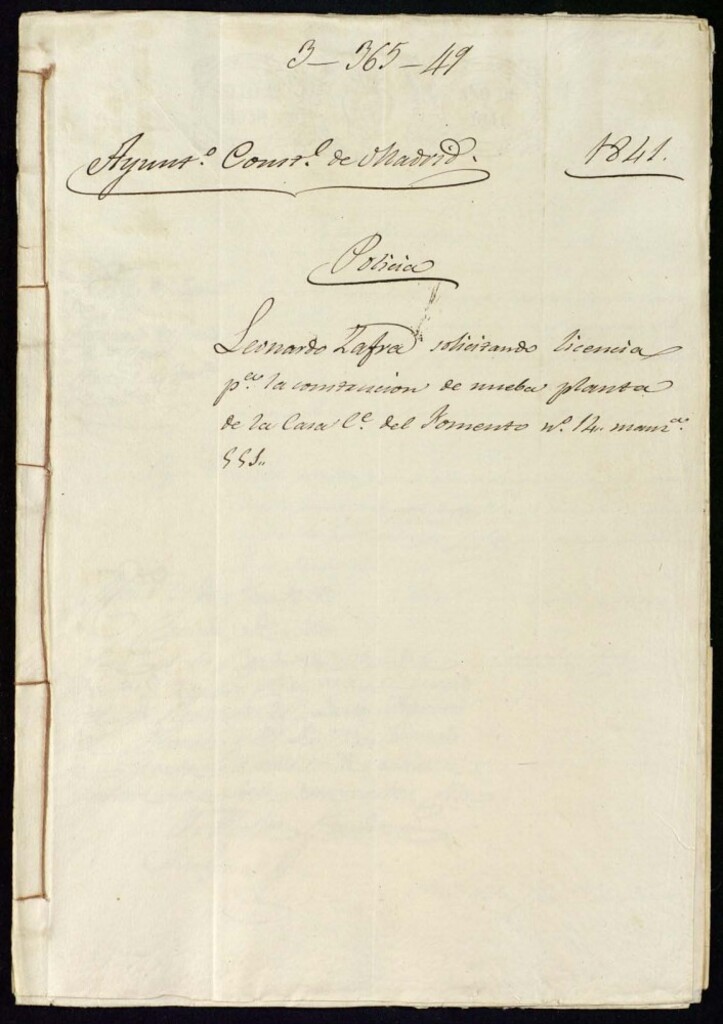 3-365-49
Ayunt.º Const.l de Madrid.
1841.
Policia
Leonardo Zafra solicitando licencia
p.ª la construcion de nueba planta
de la Casa C.e del Fomento nº. 14. manz.ª
551..